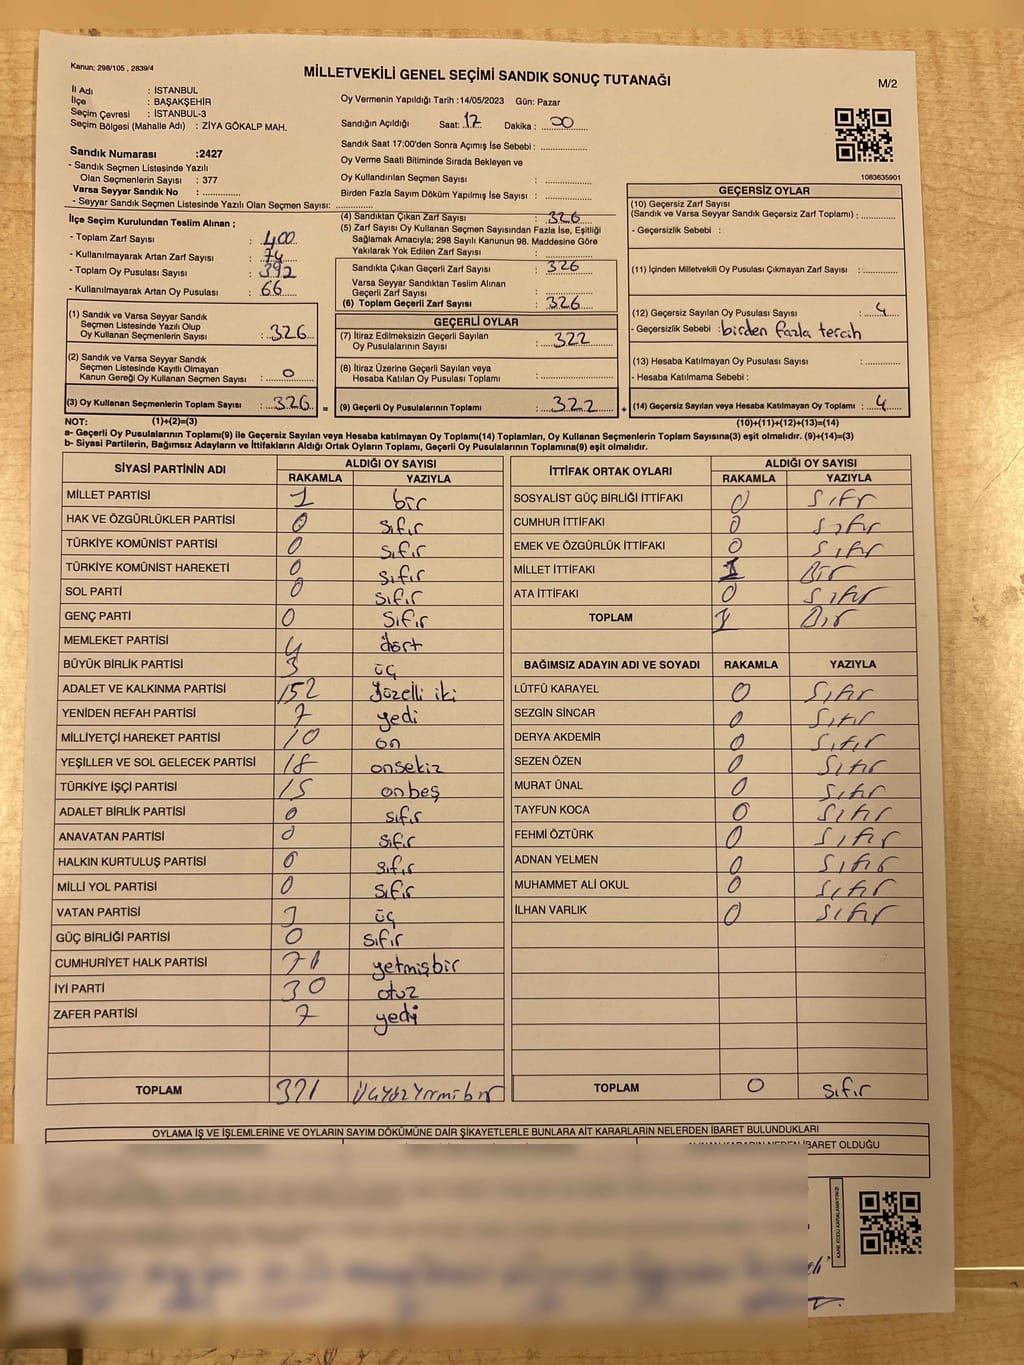 Kanun; 298/105 , 2839/4
MİLLETVEKİLİ GENEL SEÇİMİ SANDIK SONUÇ TUTANAĞI
M/2
İl Adı : İSTANBUL
İlçe : BAŞAKŞEHİR
Seçim Çevresi : İSTANBUL-3
Seçim Bölgesi (Mahalle Adı) : ZİYA GÖKALP MAH.
Oy Vermenin Yapıldığı Tarih :14/05/2023 Gün: Pazar
Sandığın Açıldığı Saat: 17 Dakika : 00
Sandık Saat 17:00'den Sonra Açımış İse Sebebi :
Oy Verme Saati Bitiminde Sırada Bekleyen ve
Oy Kullandırılan Seçmen Sayısı :
Birden Fazla Sayım Döküm Yapılmış İse Sayısı :
Sandık Numarası :2427
- Sandık Seçmen Listesinde Yazılı
Olan Seçmenlerin Sayısı : 377
Varsa Seyyar Sandık No :
- Seyyar Sandık Seçmen Listesinde Yazılı Olan Seçmen Sayısı:
1083635901
İlçe Seçim Kurulundan Teslim Alınan ;
- Toplam Zarf Sayısı : 400
- Kullanılmayarak Artan Zarf Sayısı : 74
- Toplam Oy Pusulası Sayısı : 392
- Kullanılmayarak Artan Oy Pusulası : 66
(1) Sandık ve Varsa Seyyar Sandık
Seçmen Listesinde Yazılı Olup
Oy Kullanan Seçmenlerin Sayısı : 326
(2) Sandık ve Varsa Seyyar Sandık
Seçmen Listesinde Kayıtlı Olmayan
Kanun Gereği Oy Kullanan Seçmen Sayısı : 0
(3) Oy Kullanan Seçmenlerin Toplam Sayısı : 326 =
(4) Sandıktan Çıkan Zarf Sayısı : 326
(5) Zarf Sayısı Oy Kullanan Seçmen Sayısından Fazla İse, Eşitliği
Sağlamak Amacıyla; 298 Sayılı Kanunun 98. Maddesine Göre
Yakılarak Yok Edilen Zarf Sayısı :
Sandıkta Çıkan Geçerli Zarf Sayısı : 326
Varsa Seyyar Sandıktan Teslim Alınan
Geçerli Zarf Sayısı :
(6) Toplam Geçerli Zarf Sayısı : 326
GEÇERLİ OYLAR
(7) İtiraz Edilmeksizin Geçerli Sayılan
Oy Pusulalarının Sayısı : 322
(8) İtiraz Üzerine Geçerli Sayılan veya
Hesaba Katılan Oy Pusulası Toplamı :
(9) Geçerli Oy Pusulalarının Toplamı : 322 +
GEÇERSİZ OYLAR
(10) Geçersiz Zarf Sayısı
(Sandık ve Varsa Seyyar Sandık Geçersiz Zarf Toplamı) :
- Geçersizlik Sebebi :
(11) İçinden Milletvekili Oy Pusulası Çıkmayan Zarf Sayısı :
(12) Geçersiz Sayılan Oy Pusulası Sayısı : 4
- Geçersizlik Sebebi : birden fazla tercih
(13) Hesaba Katılmayan Oy Pusulası Sayısı :
- Hesaba Katılmama Sebebi :
(14) Geçersiz Sayılan veya Hesaba Katılmayan Oy Toplamı : 4
NOT: (1)+(2)=(3) (10)+(11)+(12)+(13)=(14)
a- Geçerli Oy Pusulalarının Toplamı(9) ile Geçersiz Sayılan veya Hesaba katılmayan Oy Toplamı(14) Toplamları, Oy Kullanan Seçmenlerin Toplam Sayısına(3) eşit olmalıdır. (9)+(14)=(3)
b- Siyasi Partilerin, Bağımsız Adayların ve İttifakların Aldığı Ortak Oyların Toplamı, Geçerli Oy Pusulalarının Toplamına(9) eşit olmalıdır.
SİYASİ PARTİNİN ADI ALDIĞI OY SAYISI
RAKAMLA YAZIYLA
MİLLET PARTİSİ 1 bir
HAK VE ÖZGÜRLÜKLER PARTİSİ 0 sıfır
TÜRKİYE KOMÜNİST PARTİSİ 0 sıfır
TÜRKİYE KOMÜNİST HAREKETİ 0 sıfır
SOL PARTİ 0 sıfır
GENÇ PARTİ 0 sıfır
MEMLEKET PARTİSİ 4 dört
BÜYÜK BİRLİK PARTİSİ 3 üç
ADALET VE KALKINMA PARTİSİ 152 yüzelli iki
YENİDEN REFAH PARTİSİ 7 yedi
MİLLİYETÇİ HAREKET PARTİSİ 10 on
YEŞİLLER VE SOL GELECEK PARTİSİ 18 onsekiz
TÜRKİYE İŞÇİ PARTİSİ 15 onbeş
ADALET BİRLİK PARTİSİ 0 sıfır
ANAVATAN PARTİSİ 0 sıfır
HALKIN KURTULUŞ PARTİSİ 0 sıfır
MİLLİ YOL PARTİSİ 0 sıfır
VATAN PARTİSİ 3 üç
GÜÇ BİRLİĞİ PARTİSİ 0 sıfır
CUMHURİYET HALK PARTİSİ 71 yetmişbir
İYİ PARTİ 30 otuz
ZAFER PARTİSİ 7 yedi
TOPLAM 321 üçyüzyirmibir
İTTİFAK ORTAK OYLARI ALDIĞI OY SAYISI
RAKAMLA YAZIYLA
SOSYALİST GÜÇ BİRLİĞİ İTTİFAKI 0 sıfır
CUMHUR İTTİFAKI 0 sıfır
EMEK VE ÖZGÜRLÜK İTTİFAKI 0 sıfır
MİLLET İTTİFAKI 1 Bir
ATA İTTİFAKI 0 sıfır
TOPLAM 1 Bir
BAĞIMSIZ ADAYIN ADI VE SOYADI RAKAMLA YAZIYLA
LÜTFÜ KARAYEL 0 sıfır
SEZGİN SİNCAR 0 sıfır
DERYA AKDEMİR 0 sıfır
SEZEN ÖZEN 0 sıfır
MURAT ÜNAL 0 sıfır
TAYFUN KOCA 0 sıfır
FEHMİ ÖZTÜRK 0 sıfır
ADNAN YELMEN 0 sıfır
MUHAMMET ALİ OKUL 0 sıfır
İLHAN VARLIK 0 sıfır
TOPLAM 0 sıfır
OYLAMA İŞ VE İŞLEMLERİNE VE OYLARIN SAYIM DÖKÜMÜNE DAİR ŞİKAYETLERLE BUNLARA AİT KARARLARIN NELERDEN İBARET BULUNDUKLARI
İBARET OLDUĞU
KARE KODU KARALAMAYINIZ!